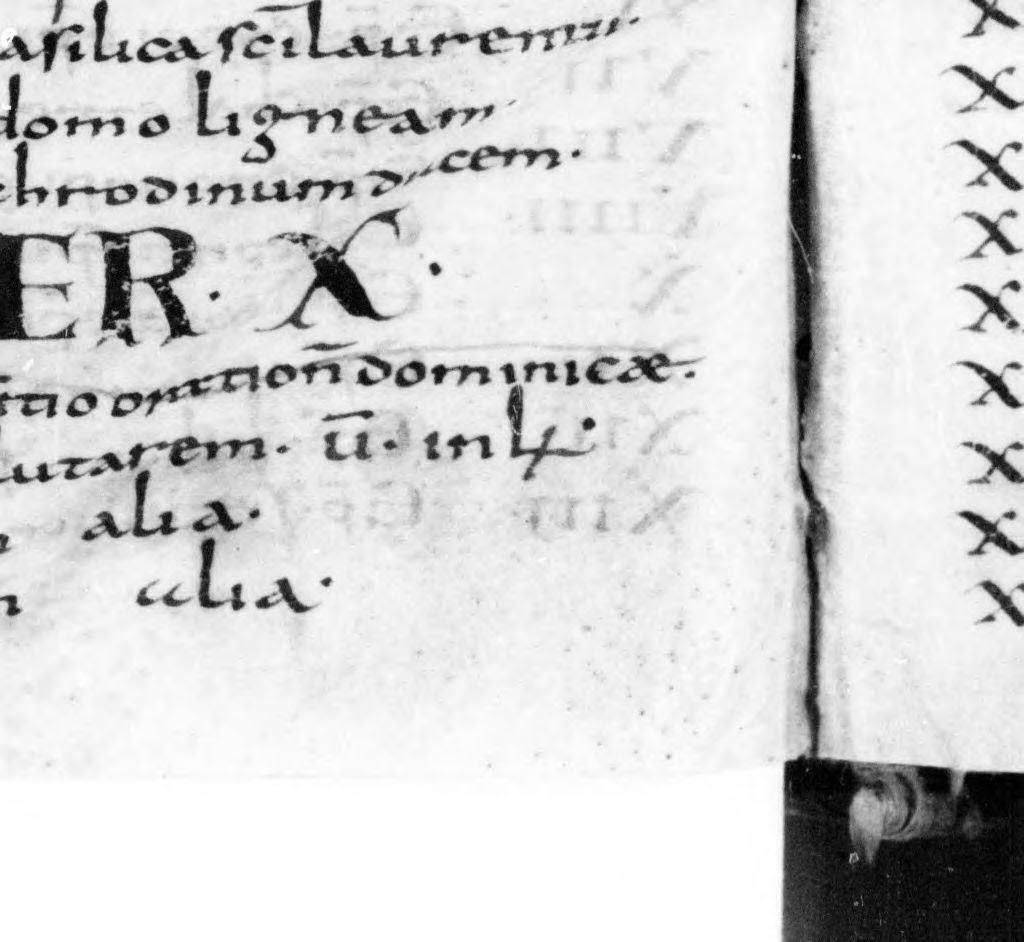 asilica sc̄i laurentii·
domo ligneam·
chrodinum ducem·
ER· X·
tio oration̄ dominicæ·
lutarem· ū· in
alia·
alia·
X
X
X
X
X
X
X
X
X